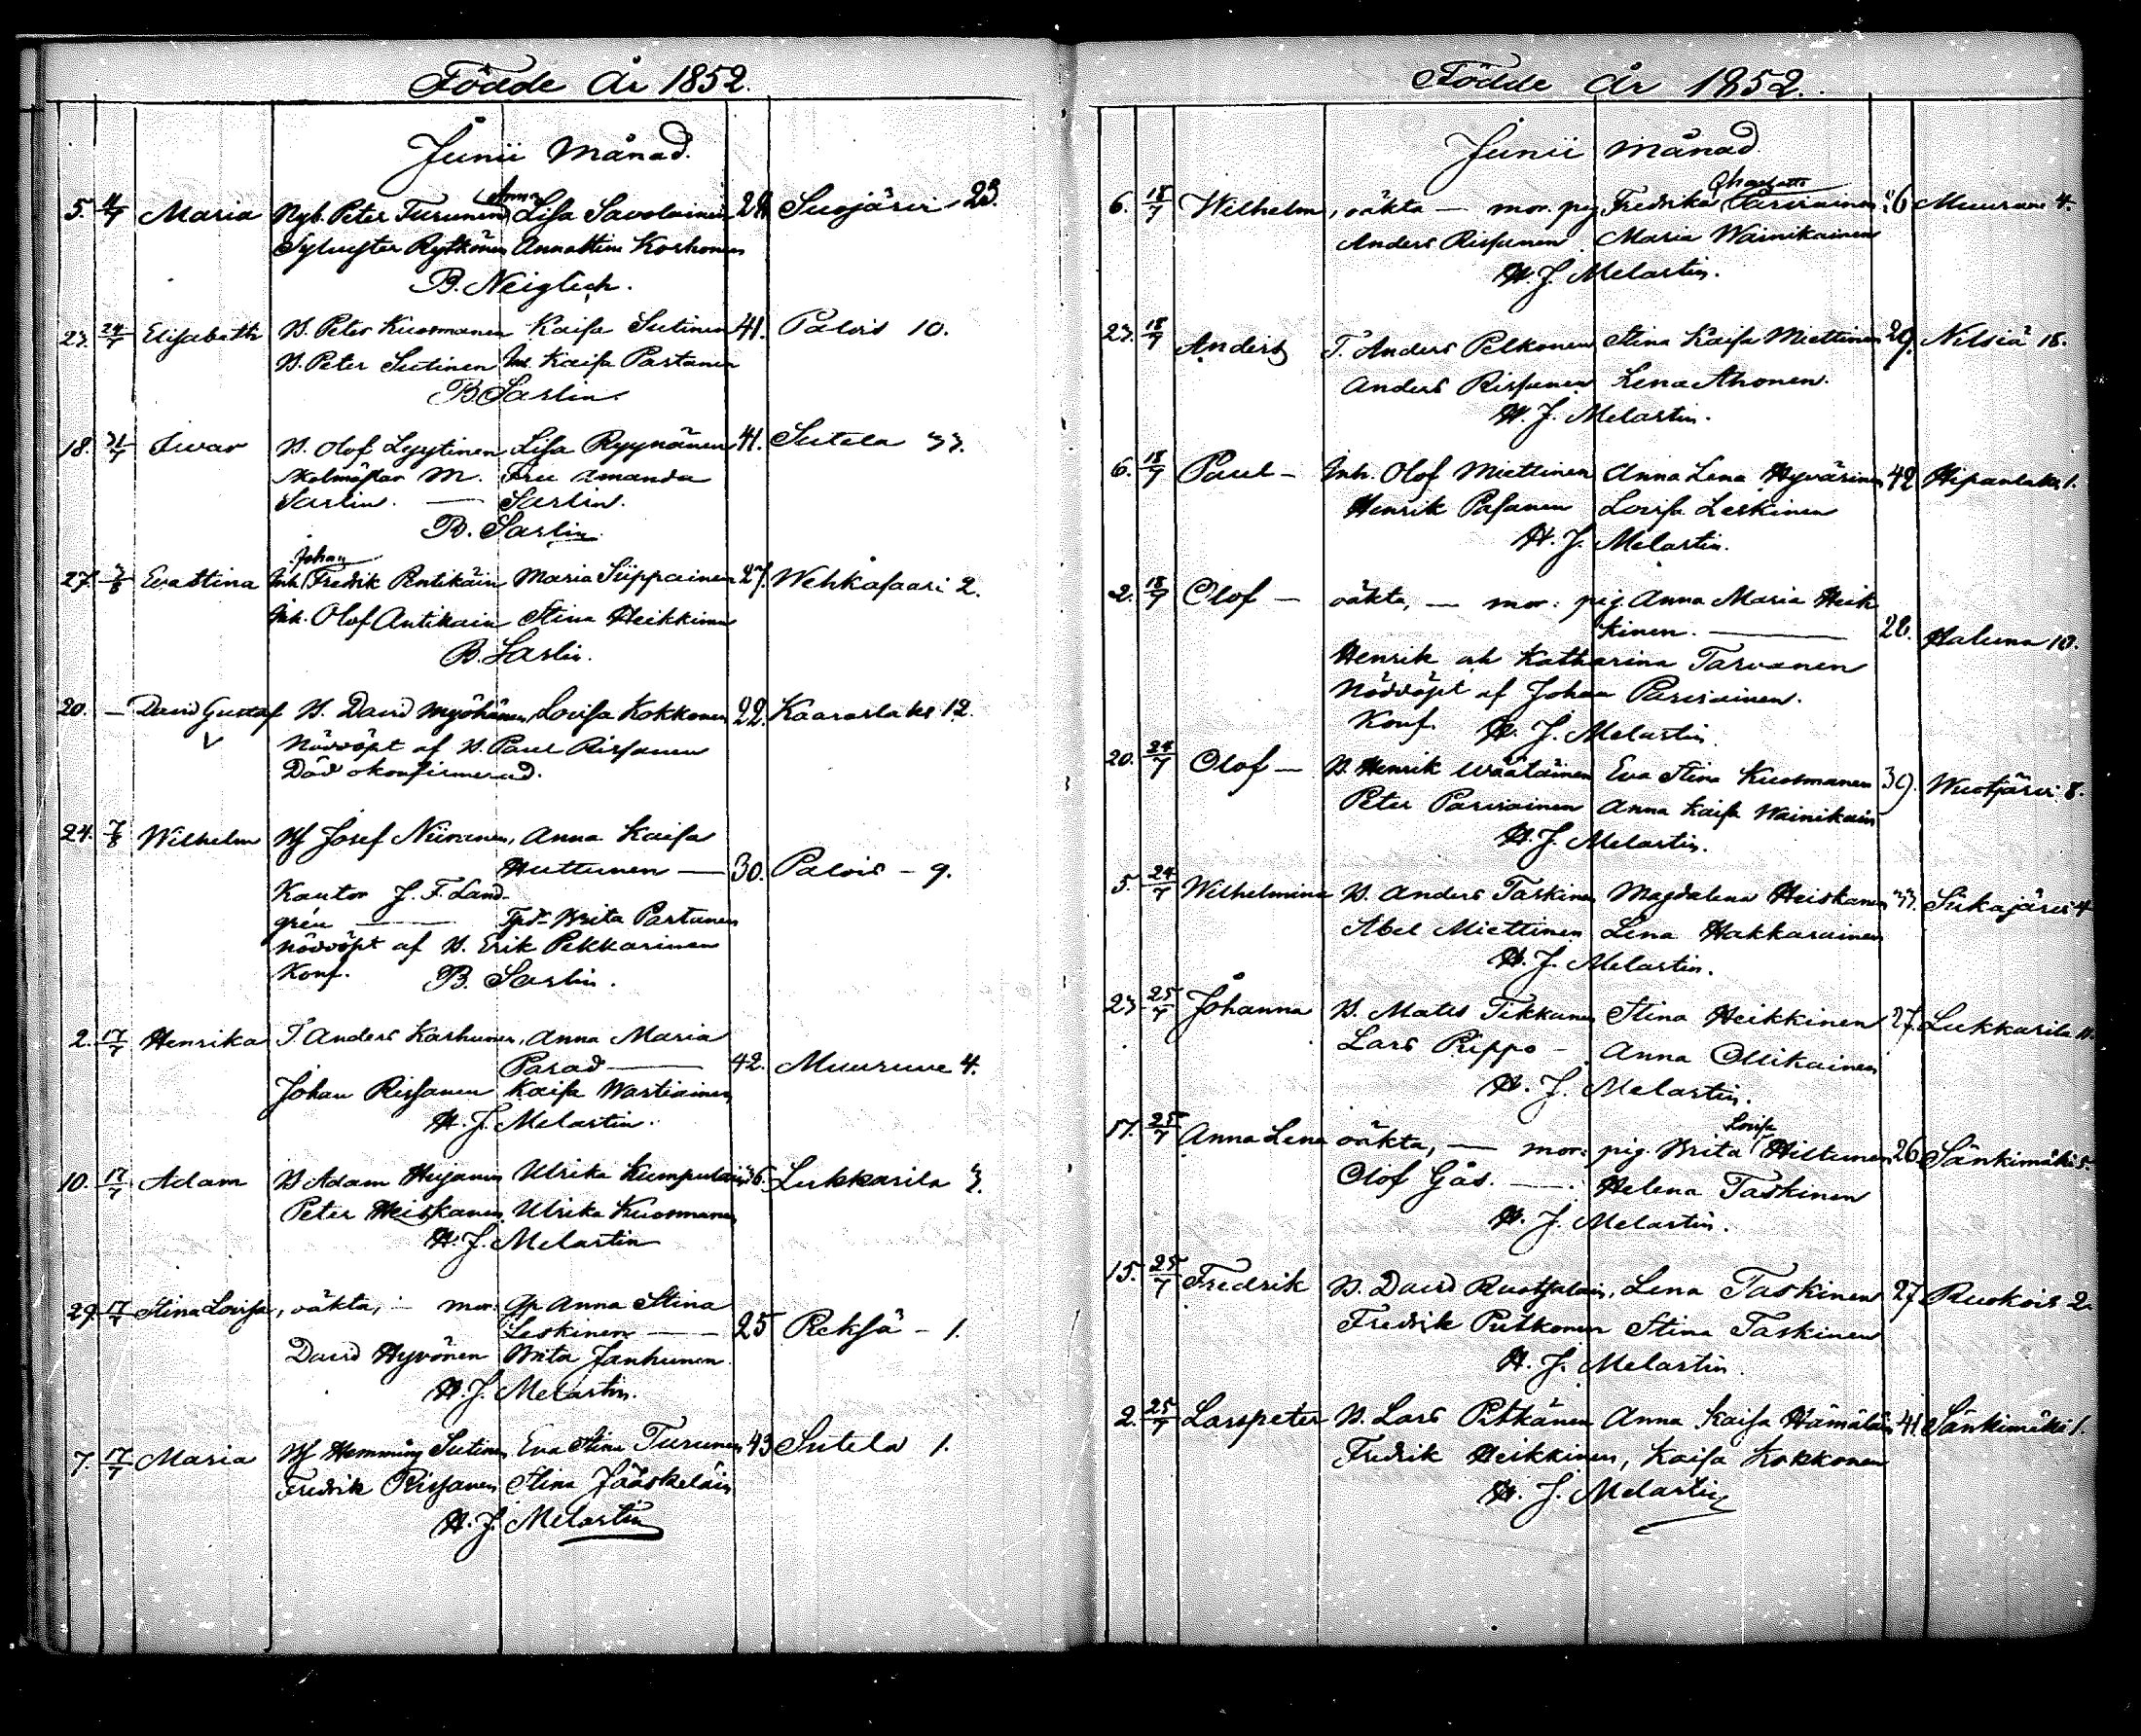 Födde År 1852.
Junii Månad.
5. 11/7 Maria Nyb. Peter Turunen, Anna Lisa Savolainen 28 Suojärvi 23.
Sylvester Rytkönen Annastina Korhonen
B. Neiglich.
23. 24/7 Elisabeth B. Peter Kuosmanen Kaisa Sutinen 41. Palois 10.
B. Peter Sutinen Kaisa Partanen
B. Sarlin.
18. 31/7 Ivar B. Olof Lyytinen Lisa Ryynänen 41. Sutela 33.
Skolmästar M. Fru Amanda
Sarlin. — Sarlin.
B. Sarlin.
Johan
27. 3/8 Eva Stina Inh. Fredrik Pentikäin Maria Siippainen 27. Wehkasaari 2.
Inh. Olof Antikain Stina Heikkinen
B. Sarlin.
20. — David Gustaf B. David Myöhänen, Lovisa Kokkonen 22. Kaaraslaks 12.
Nöddöpt af B. Paul Rissanen
Död okonfirmerad.
24. 7/8 Wilhelm Josef Niiranen, Anna Kaisa
Huttunen — 30. Palois - 9.
Kantor J. F. Land-
grén — Brita Partanen
Nöddöpt af B. Erik Pekkarinen
Konf. B. Sarlin.
2. 17/7 Henrika T. Anders Karhunen, Anna Maria
Parad — 42. Muuruve 4.
Johan Rissanen Kaisa Wartiainen
H. J. Melartin.
10. 17/7 Adam B. Adam Hujanen Ulrika Kumpulain 36. Lukkarila 3.
Peter Heiskanen Ulrika Kuosmanen
H. J. Melartin
29. 17/7 Stina Lovisa, oäkta, — mor: Anna Stina
Leskinen — 25 Reksä - 1.
David Hyvönen Brita Janhunen.
H. J. Melartin.
7. 17/7 Maria Hemming Sutinen Eva Stina Turunen 43 Sutela 1.
Fredrik Rissanen Stina Jääskeläin
H. J. Melartin
Födde År 1852.
Junii Månad
Charlotta
6. 18/7 Wilhelm, oäkta — mor. pig Fredrika Parviainen 26 Muuruve 4.
Anders Rissanen Maria Wainikainen
H. J. Melartin.
23. 18/7 Anders T. Anders Pelkonen Stina Kaisa Miettinen 29. Nilsiä 18.
Anders Rissanen Lena Ahonen.
H. J. Melartin.
6. 18/7 Paul — Inh. Olof Miettinen Anna Lena Hyvärinen 42 Hipanlaks 1.
Henrik Pasanen Lovisa Leskinen
H. J. Melartin.
2. 18/7 Olof — oäkta, — mor: pig. Anna Maria Heik
kinen. — 28. Haluna 10.
Henrik och Katharina Tarvanen
Nöddöpt af Johan Parviainen.
Konf. H. J. Melartin
20. 24/7 Olof — B. Henrik Wäätäinen Eva Stina Kuosmanen 39. Wuotjärvi 8.
Peter Parviainen Anna Kaisa Wainikain
H. J. Melartin.
5. 24/7 Wilhelmina B. Anders Taskinen Magdalena Heiskanen 33. Siikajärvi 4
Abel Miettinen Lena Hakkarainen
H. J. Melartin.
23. 25/7 Johanna B. Mats Tikkanen Stina Heikkinen 27. Lukkarila 11.
Lars Piippo — Anna Ollikainen
H. J. Melartin.
Lovisa
17. 25/7 Anna Lena oäkta, — mor: pig. Brita Hiltunen 26 Sänkimäki 5.
Olof Gås. — Helena Taskinen
H. J. Melartin.
15. 25/7 Fredrik B. David Ruotsalain, Lena Taskinen 27 Ruokois 2.
Fredrik Pitkonen Stina Taskinen
H. J. Melartin.
2. 25/7 Larspeter B. Lars Pitkänen Anna Kaisa Hämäläin 41. Sänkimäki 1.
Fredrik Heikkinen, Kaisa Kokkonen
H. J. Melartin